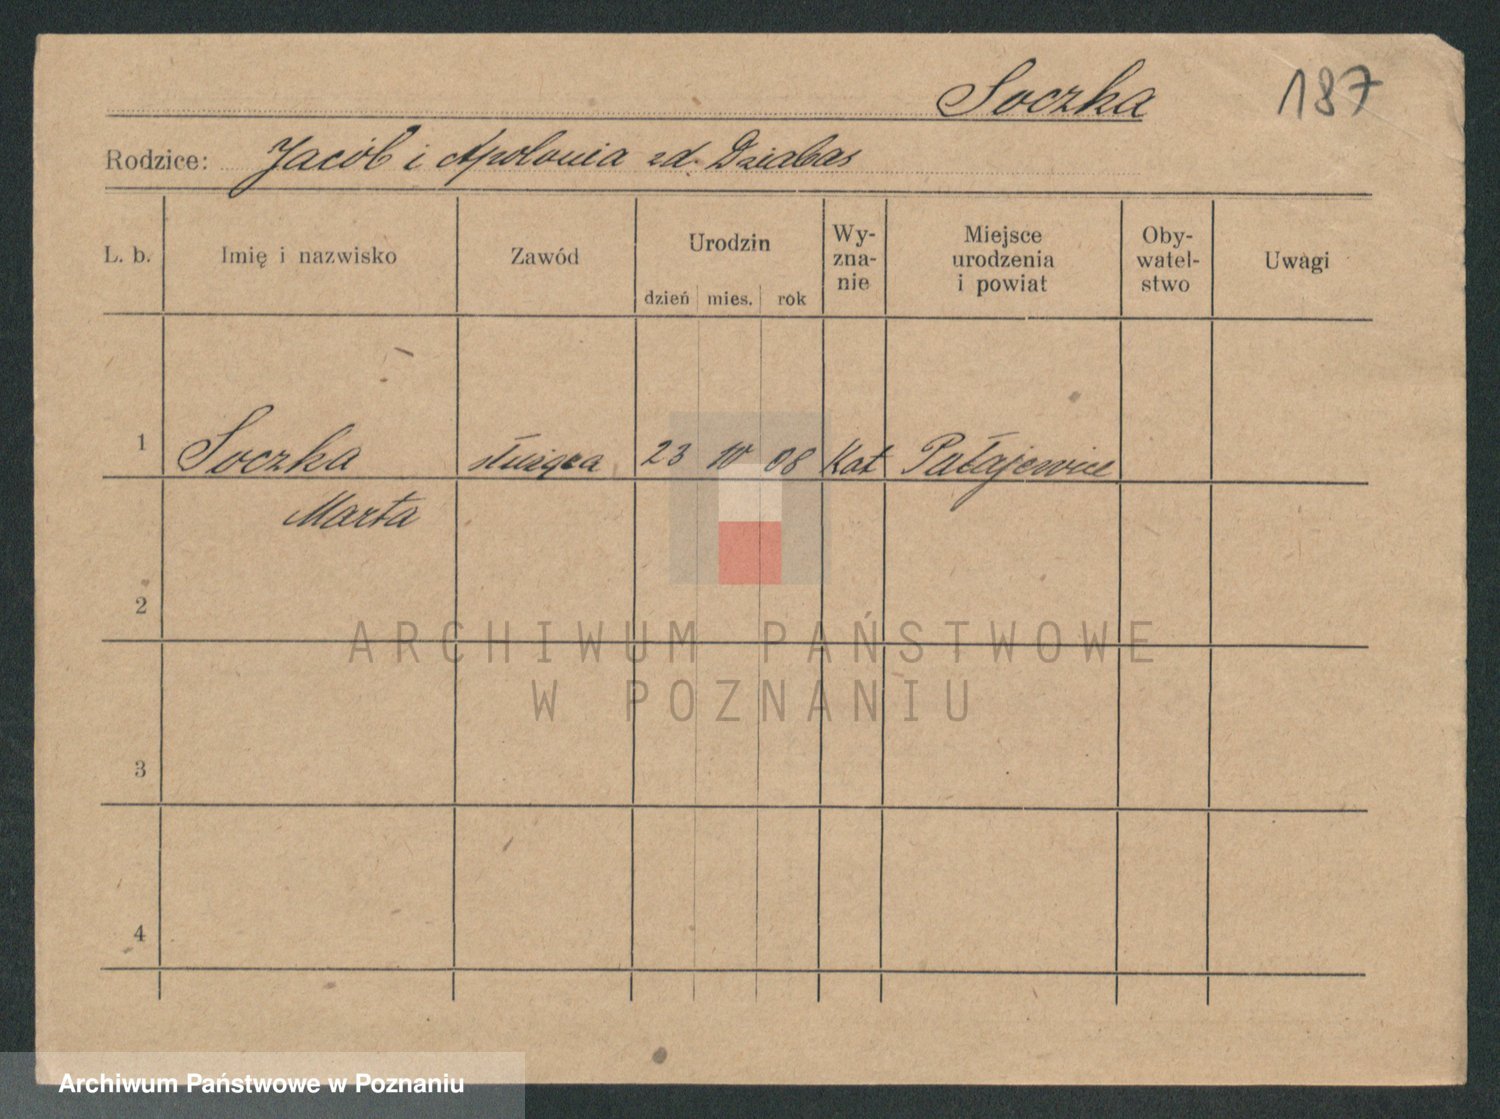 Soczka 187
Rodzice: Jacób i Apolonia zd. Dziabas
L. b. Imię i nazwisko Zawód Urodzin dzień mies. rok Wy-zna-nie Miejsce urodzenia i powiat Oby-watel-stwo Uwagi
1 Soczka służąca 23 10 08 Kat
Marta
2
ARCHIWUM PAŃSTWOWE
W POZNANIU
3
4
Archiwum Państwowe w Poznaniu